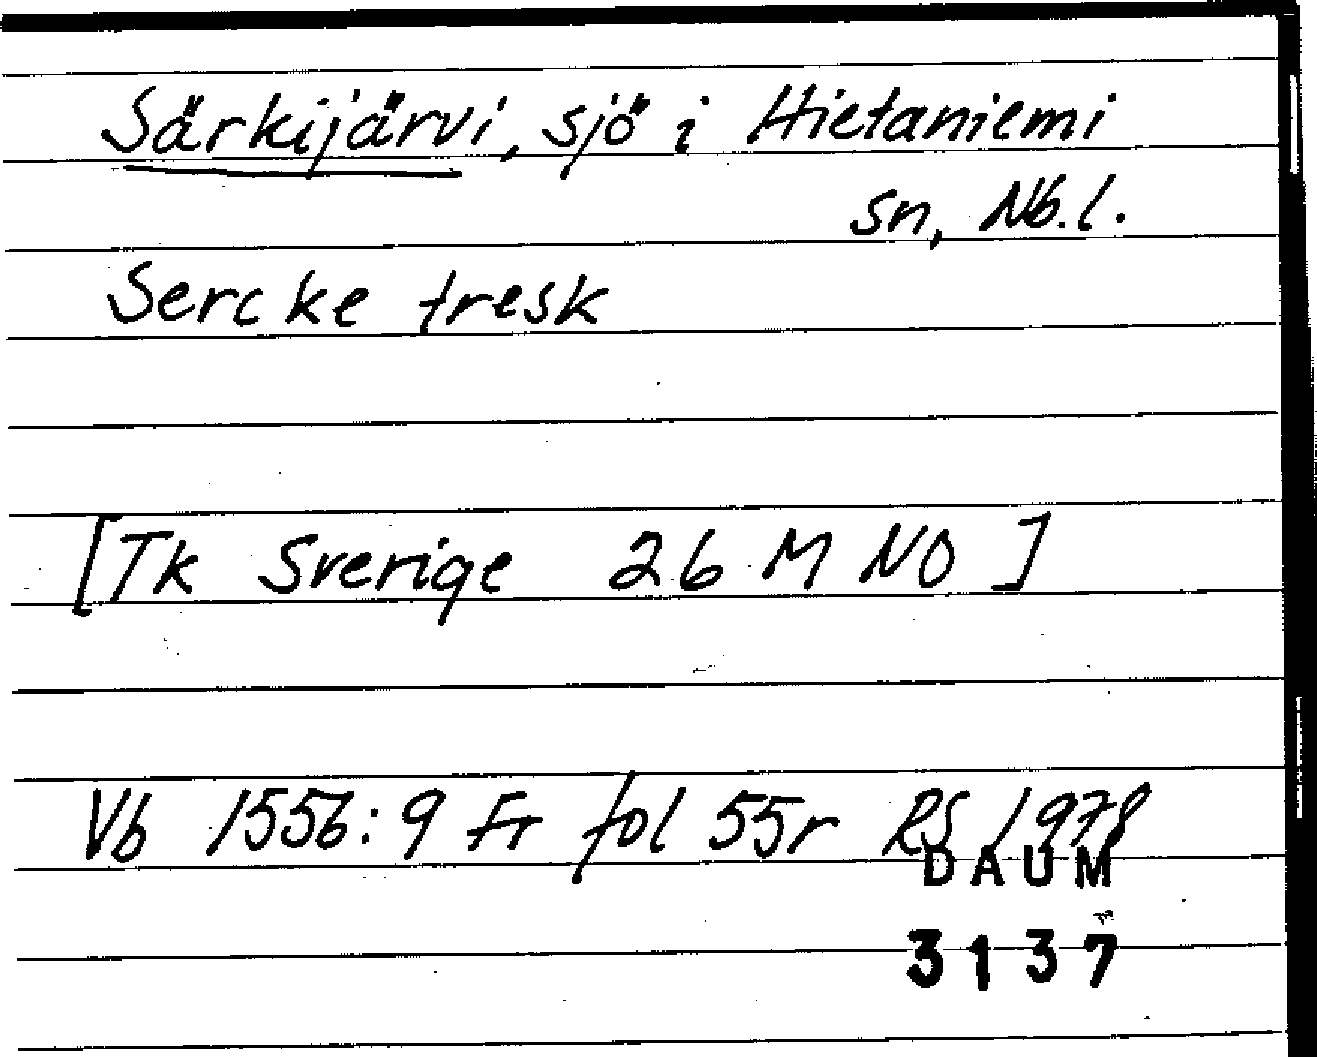 Särkijärvi, sjö i Hietaniemi
sn, Nb.l.
Sercke tresk
[Tk Sverige 26 M NO]
Vb 1556:9 Fr fol 55r RS 1978
DAUM
3137